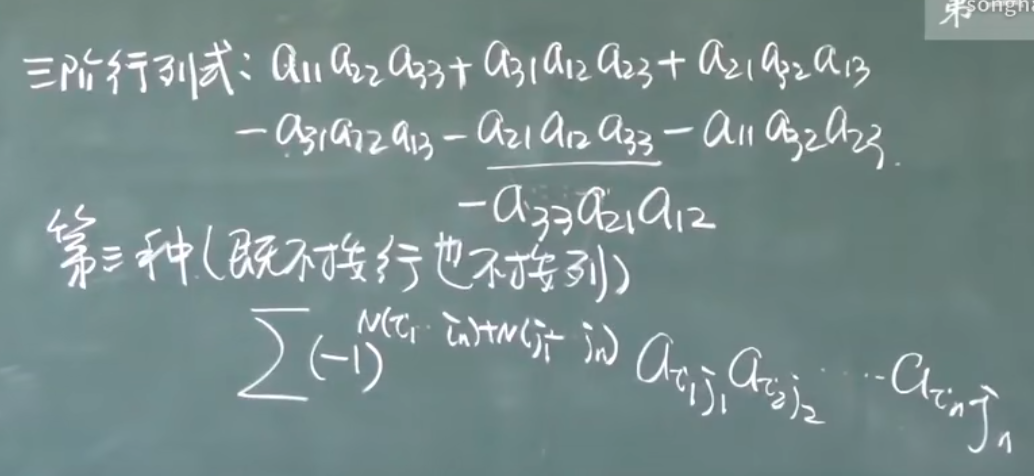 第
songha
三阶行列式: a₁₁a₂₂a₃₃+ a₃₁a₁₂a₂₃+ a₂₁a₃₂a₁₃
-a₃₁a₂₂a₁₃-a₂₁a₁₂a₃₃-a₁₁a₃₂a₂₃.
-a₃₃a₂₁a₁₂
第三种(既不按行也不按列)
∑(-1)^{N(i₁⋯iₙ)+N(j₁⋯jₙ)} a_{i₁j₁}a_{i₂j₂}⋯⋯a_{iₙjₙ}